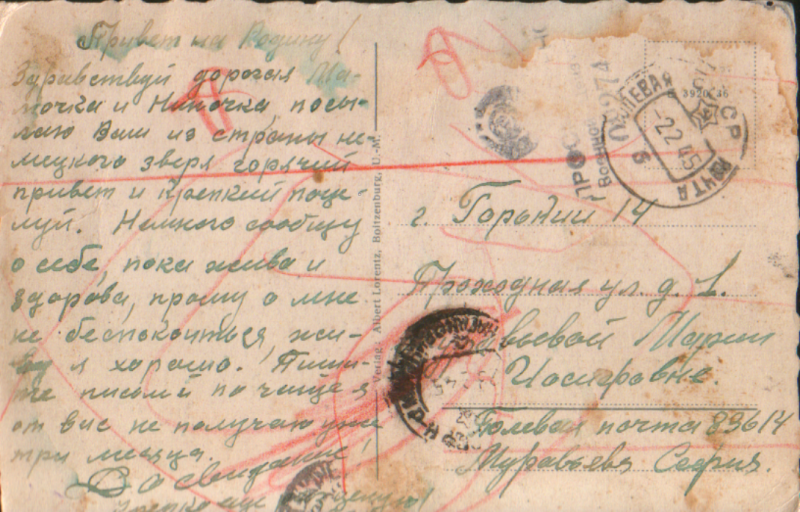 Привет на Родину!
Здравствуй дорогая Ма-
мочка и Ниночка, посы-
лаю Вам из страны не-
мецкого зверя горячий
привет и крепкий поце-
луй. Немного сообщу
о себе, пока жива и
здорова, прошу о мне
не беспокоиться, жи-
ву я хорошо. Пиши-
те писем по чаще я
от вас не получаю уже
три месяца.
До свидания!
Крепко вас целую!
Verlag: Albert Lorentz, Boitzenburg, U.-M.
ПРОС
Военной
07274
ПОЛЕВАЯ
ПОЧТА
СССР
22 2 45
б
3920 46
г. Горький 14
Проходная ул. д. 1.
вьевой Марии
Иосифовне.
Полевая почта 83614
Муравьева София.